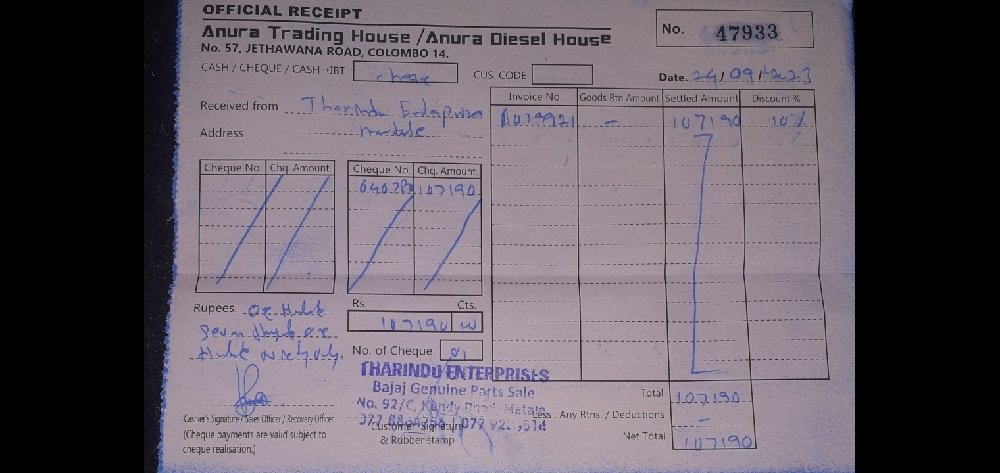 OFFICIAL RECEIPT
Anura Trading House / Anura Diesel House
No. 57, JETHAWANA ROAD, COLOMBO 14.
No. 47933
CASH / CHEQUE / CASH IBT
CUS. CODE
Date. 24/09/2023
Received from Tharindu Enterprises
Address
Invoice No. Goods Rtn Amount Settled Amount Discount %
– 107190 10%
Cheque No. Chq. Amount
Cheque No. Chq. Amount
107190
Rupees.
Rs. Cts.
107190
No. of Cheque 01
THARINDU ENTERPRISES
Bajaj Genuine Parts Sale
No. 92/C, Kandy Road, Matale
Cashier's Signature / Sales Officer / Recovery Officer
(Cheque payments are valid subject to
cheque realisation.)
Customer Signature
& Rubber stamp
Total 107190
Less : Any Rtns. / Deductions –
Net Total 107190